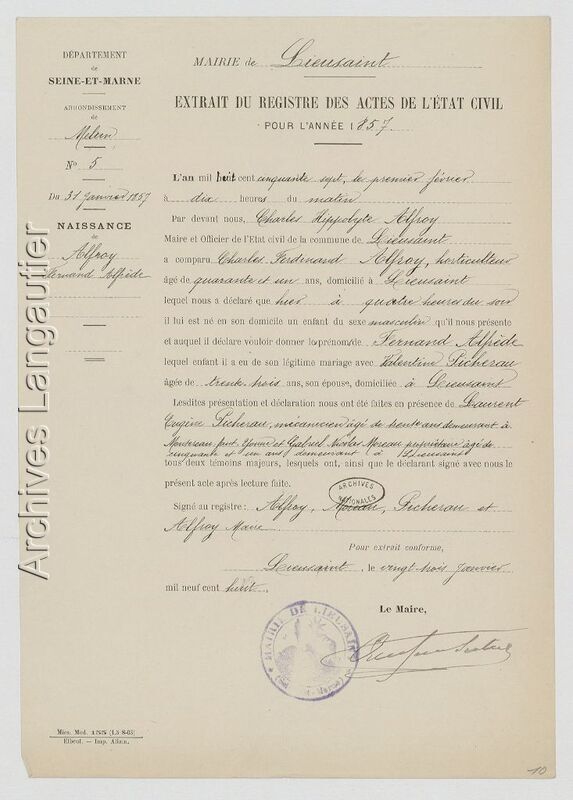 DÉPARTEMENT
de
SEINE-ET-MARNE
ARRONDISSEMENT
de
Melun
N° 5
Du 31 Janvier 1857
NAISSANCE
de
Alfroy
Fernand Alfrède
MAIRIE de Lieusaint
EXTRAIT DU REGISTRE DES ACTES DE L'ÉTAT CIVIL
POUR L'ANNÉE 1857.
L'an mil huit cent cinquante sept, le premier février
à dix heures du matin
Par devant nous, Charles Hippolyte Alfroy
Maire et Officier de l'Etat civil de la commune de Lieusaint
a comparu Charles Ferdinand Alfroy, horticulteur
âgé de quarante et un ans, domicilié à Lieusaint
lequel nous a déclaré que hier à quatre heures du soir
il lui est né en son domicile un enfant du sexe masculin qu'il nous présente
et auquel il déclare vouloir donner le prénom de Fernand Alfrède
lequel enfant il a eu de son légitime mariage avec Valentine Picherau
âgée de trente trois ans, son épouse, domiciliée à Lieusaint
Lesdites présentation et déclaration nous ont été faites en présence de Laurent
Eugène Picherau, mécanicien âgé de trente ans demeurant à
Montereau faut Yonne et Gabriel Nicolas Moreau propriétaire âgé de
cinquante et un ans demeurant à Lieusaint
tous deux témoins majeurs, lesquels ont, ainsi que le déclarant signé avec nous le
présent acte après lecture faite.
ARCHIVES
NATIONALES
Signé au registre : Alfroy, Moreau, Picherau et
Alfroy Maire
Pour extrait conforme,
Lieusaint, le vingt trois Janvier
mil neuf cent huit.
Le Maire,
MAIRIE DE LIEUSAINT
Miev. Mod.
Elbeuf. — Imp. Allain.
10
Archives Langautier